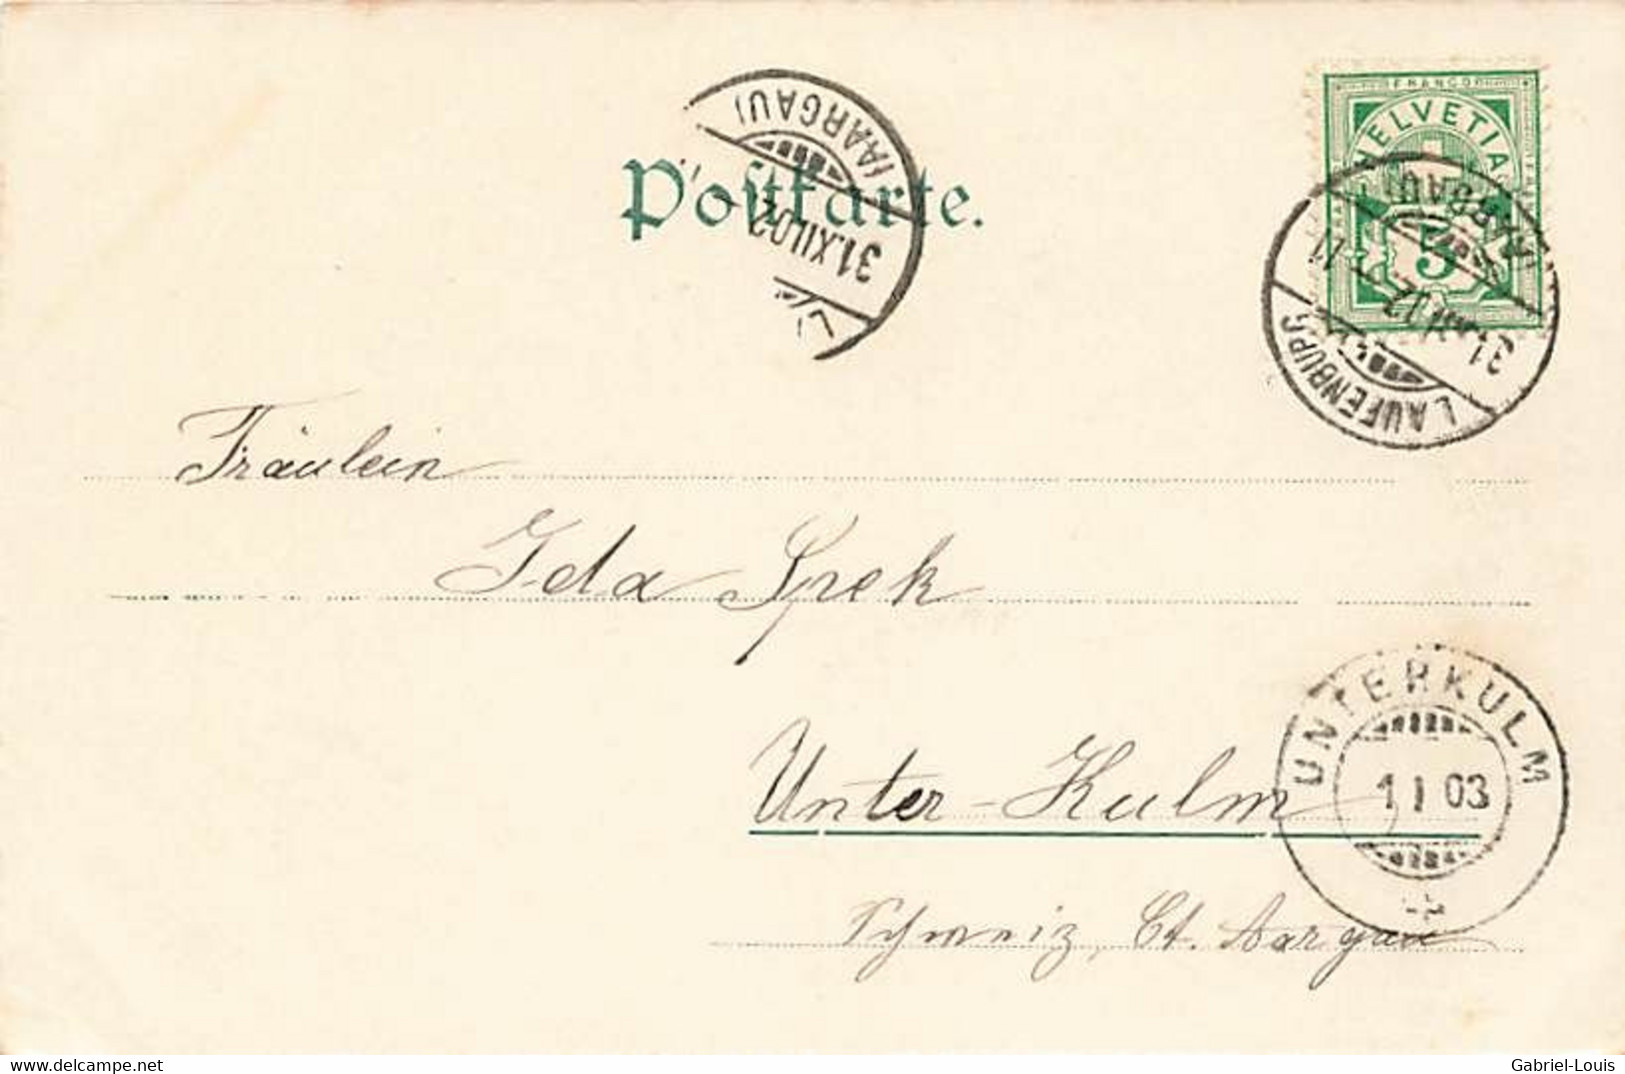 Postkarte.
(AARGAU)
31.XII.02
FRANCO
HELVETIA
5
(AARGAU)
31.XII.02
11
LAUFENBURG
Fräulein
Ida Spek
UNTERKULM
1 I 03
Unter-Kulm
Schweiz, Ct. Aargau
delcampe.net
Gabriel-Louis